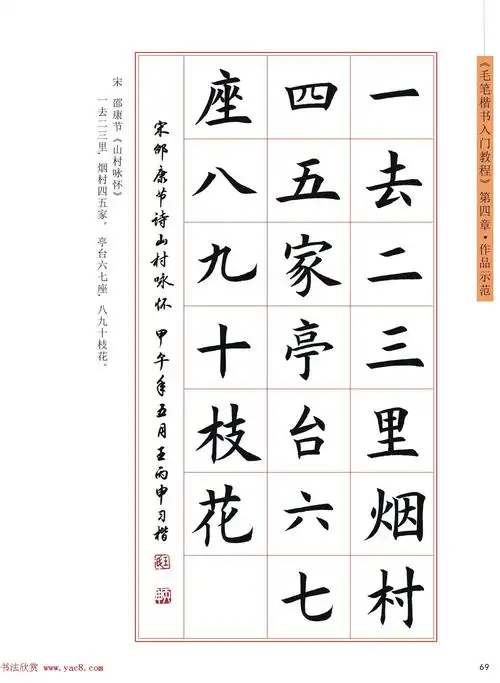 《毛笔楷书入门教程》第四章·作品示范
一去二三里烟村
四五家亭台六七
座八九十枝花
宋邵康节诗山村咏怀 甲午年五月王丙申习楷
宋 邵康节《山村咏怀》
一去二三里，烟村四五家。亭台六七座，八九十枝花。
69
书法欣赏 www.yac8.com